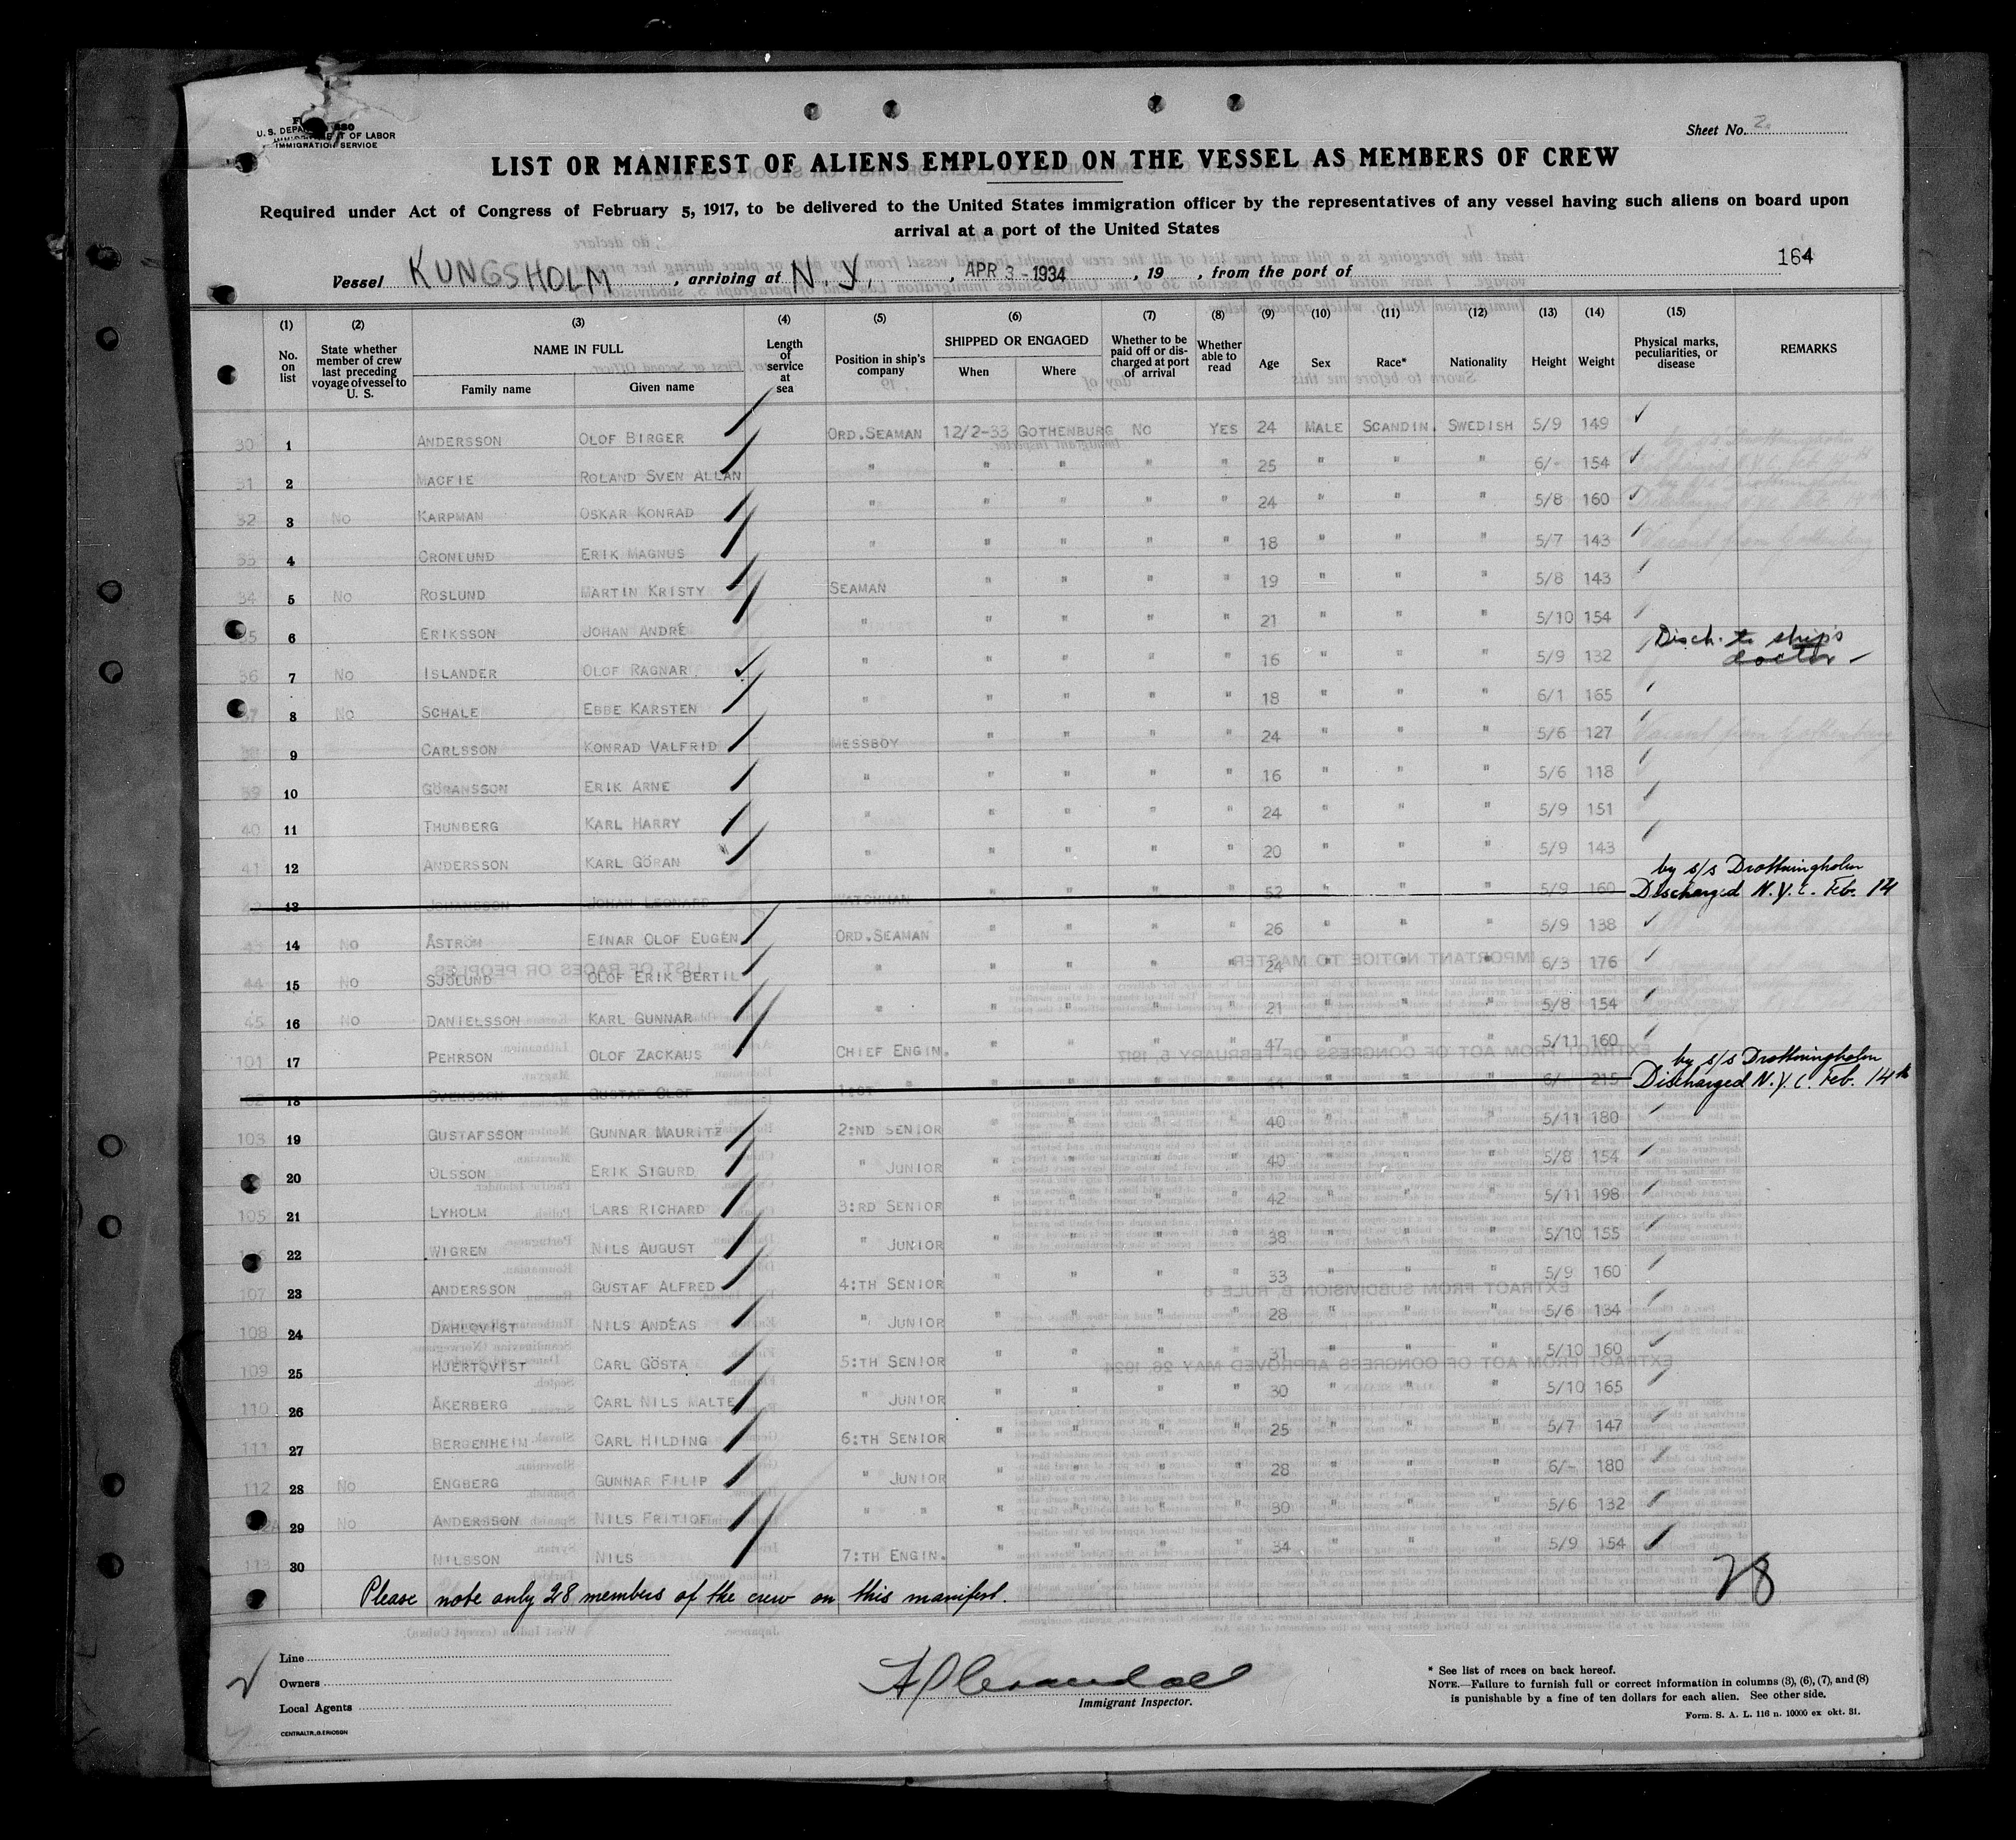 U. S. DEPARTMENT OF LABOR
IMMIGRATION SERVICE
Sheet No. 2.
LIST OR MANIFEST OF ALIENS EMPLOYED ON THE VESSEL AS MEMBERS OF CREW
Required under Act of Congress of February 5, 1917, to be delivered to the United States immigration officer by the representatives of any vessel having such aliens on board upon
arrival at a port of the United States
164
Vessel KUNGSHOLM, arriving at N. Y., APR 3 - 1934, 19 , from the port of
(1) (2) (3) (4) (5) (6) (7) (8) (9) (10) (11) (12) (13) (14) (15)
No. on list State whether member of crew last preceding voyage of vessel to U. S. NAME IN FULL Family name Given name Length of service at sea Position in ship's company SHIPPED OR ENGAGED When Where Whether to be paid off or discharged at port of arrival Whether able to read Age Sex Race* Nationality Height Weight Physical marks, peculiarities, or disease REMARKS
30 1 ANDERSSON OLOF BIRGER ORD.SEAMAN 12/2-33 GOTHENBURG NO YES 24 MALE SCANDIN. SWEDISH 5/9 149
31 2 MACFIE ROLAND SVEN ALLAN " " " " " 25 " " " 6/- 154
32 3 No KARPMAN OSKAR KONRAD " " " " " 24 " " " 5/8 160
33 4 CRONLUND ERIK MAGNUS " " " " " 18 " " " 5/7 143
34 5 No ROSLUND MARTIN KRISTY SEAMAN " " " " 19 " " " 5/8 143
35 6 ERIKSSON JOHAN ANDRÉ " " " " " 21 " " " 5/10 154
36 7 No ISLANDER OLOF RAGNAR " " " " " 16 " " " 5/9 132 Disch. to ship's doctor
37 8 No SCHALE EBBE KARSTEN " " " " " 18 " " " 6/1 165
38 9 CARLSSON KONRAD VALFRID MESSBOY " " " " 24 " " " 5/6 127
39 10 GÖRANSSON ERIK ARNE " " " " " 16 " " " 5/6 118
40 11 THUNBERG KARL HARRY " " " " " 24 " " " 5/9 151
41 12 ANDERSSON KARL GÖRAN " " " " " 20 " " " 5/9 143
42 13 JOHANSSON JOHAN LEONARD WATCHMAN " " " " 52 " " " 5/9 160 by s/s Drottningholm Discharged N.Y.C. Feb. 14
43 14 No ÅSTRÖM EINAR OLOF EUGEN ORD.SEAMAN " " " " 26 " " " 5/9 138
44 15 No SJÖLUND OLOF ERIK BERTIL " " " " " 24 " " " 6/3 176
45 16 No DANIELSSON KARL GUNNAR " " " " " 21 " " " 5/8 154
101 17 PEHRSON OLOF ZACKAUS CHIEF ENGIN. " " " " 47 " " " 5/11 160
18 SVENSSON GUSTAF OLOF 1:ST " " " " " 44 " " " 6/- 215 by s/s Drottningholm Discharged N.Y.C. Feb. 14th
103 19 GUSTAFSSON GUNNAR MAURITZ 2:ND SENIOR " " " " 40 " " " 5/11 180
20 OLSSON ERIK SIGURD " JUNIOR " " " " 40 " " " 5/8 154
105 21 LYHOLM LARS RICHARD 3:RD SENIOR " " " " 42 " " " 5/11 198
22 WIGREN NILS AUGUST " JUNIOR " " " " 38 " " " 5/10 155
107 23 ANDERSSON GUSTAF ALFRED 4:TH SENIOR " " " " 33 " " " 5/9 160
108 24 DAHLQVIST NILS ANDÉAS " JUNIOR " " " " 28 " " " 5/6 134
109 25 HJERTQVIST CARL GÖSTA 5:TH SENIOR " " " " 31 " " " 5/10 160
110 26 ÅKERBERG CARL NILS MALTE " JUNIOR " " " " 30 " " " 5/10 165
111 27 BERGENHEIM CARL HILDING 6:TH SENIOR " " " " 25 " " " 5/7 147
112 28 No ENGBERG GUNNAR FILIP " JUNIOR " " " " 28 " " " 6/- 180
29 No ANDERSSON NILS FRITIOF " " " " " " 30 " " " 5/6 132
113 30 NILSSON NILS 7:TH ENGIN. " " " " 34 " " " 5/9 154
Please note only 28 members of the crew on this manifest.
28
Line
Owners
Local Agents
CENTRALTR., G. ERICSON
Immigrant Inspector.
* See list of races on back hereof.
NOTE.—Failure to furnish full or correct information in columns (3), (6), (7), and (8)
is punishable by a fine of ten dollars for each alien. See other side.
Form. S. A. L. 116 n. 10000 ex okt. 31.